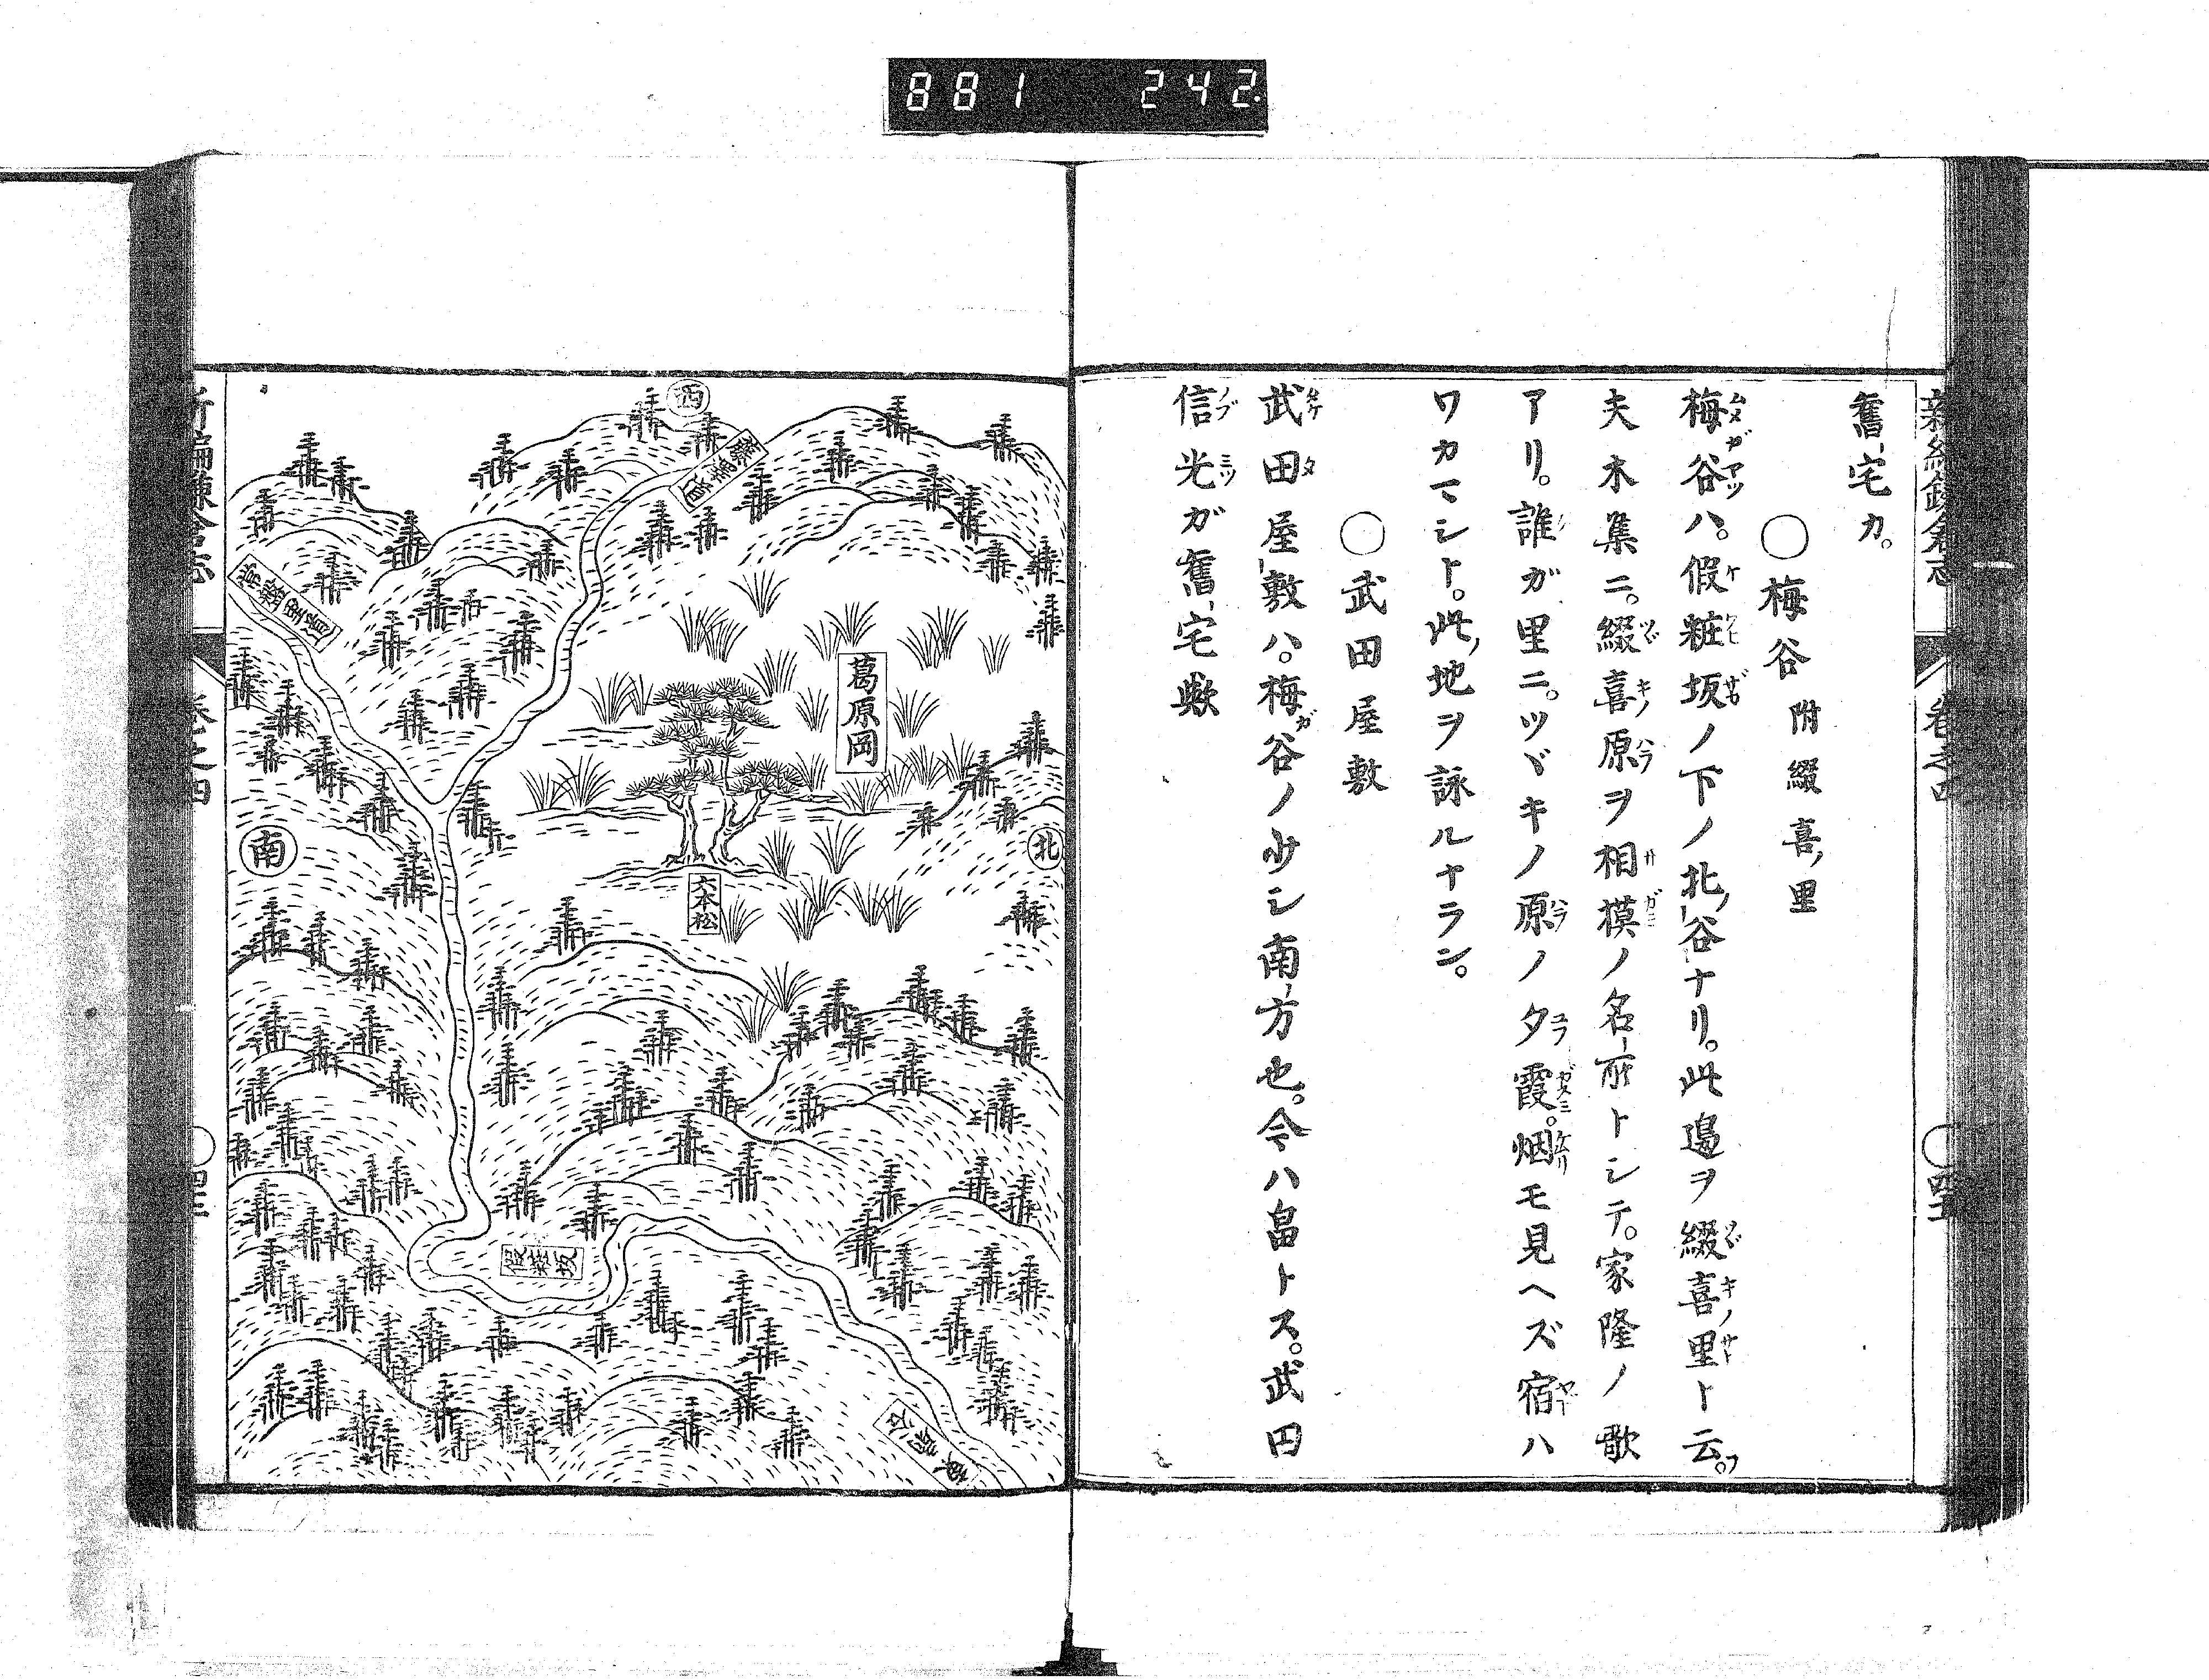 881 242.
新編鎌倉志 卷之四 ○四五
舊宅カ。
○梅谷 附綴喜里
梅谷ハ。假粧坂ノ下ノ北谷ナリ。此邊ヲ綴喜里ト云フ。
夫木集ニ。綴喜原ヲ相摸ノ名所トシテ。家隆ノ歌
アリ。誰ガ里ニ。ツヾキノ原ノ夕霞。烟モ見ヘズ宿ハ
ワカマシト。此地ヲ詠ルナラン。
○武田屋敷
武田屋敷ハ。梅谷ノ少シ南方也。今ハ畠トス。武田
信光ガ舊宅歟
西
葛原岡
六本松
北
南
常盤里道
假粧坂
新編鎌倉志 卷之四